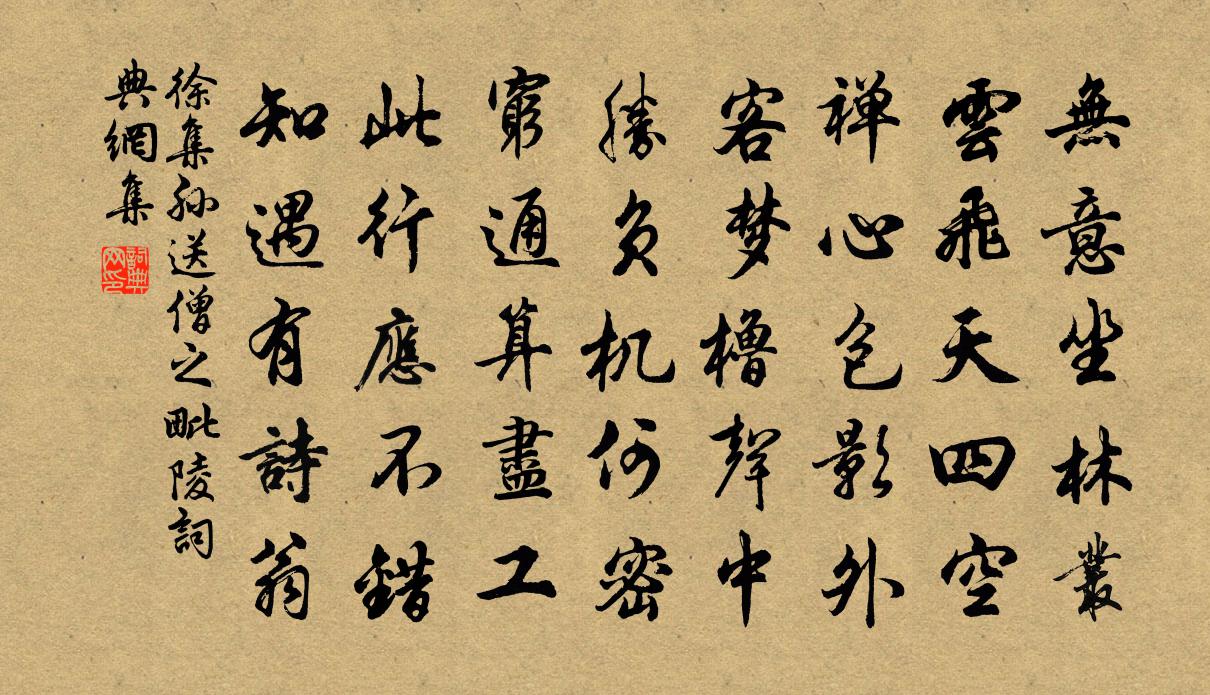 無意坐林叢
雲飛天四空
禅心包影外
客梦櫓聲中
勝负机何密
窮通算盡工
此行應不錯
知遇有詩翁
徐集孙送僧之毗陵詞
典網集
詞典
网印